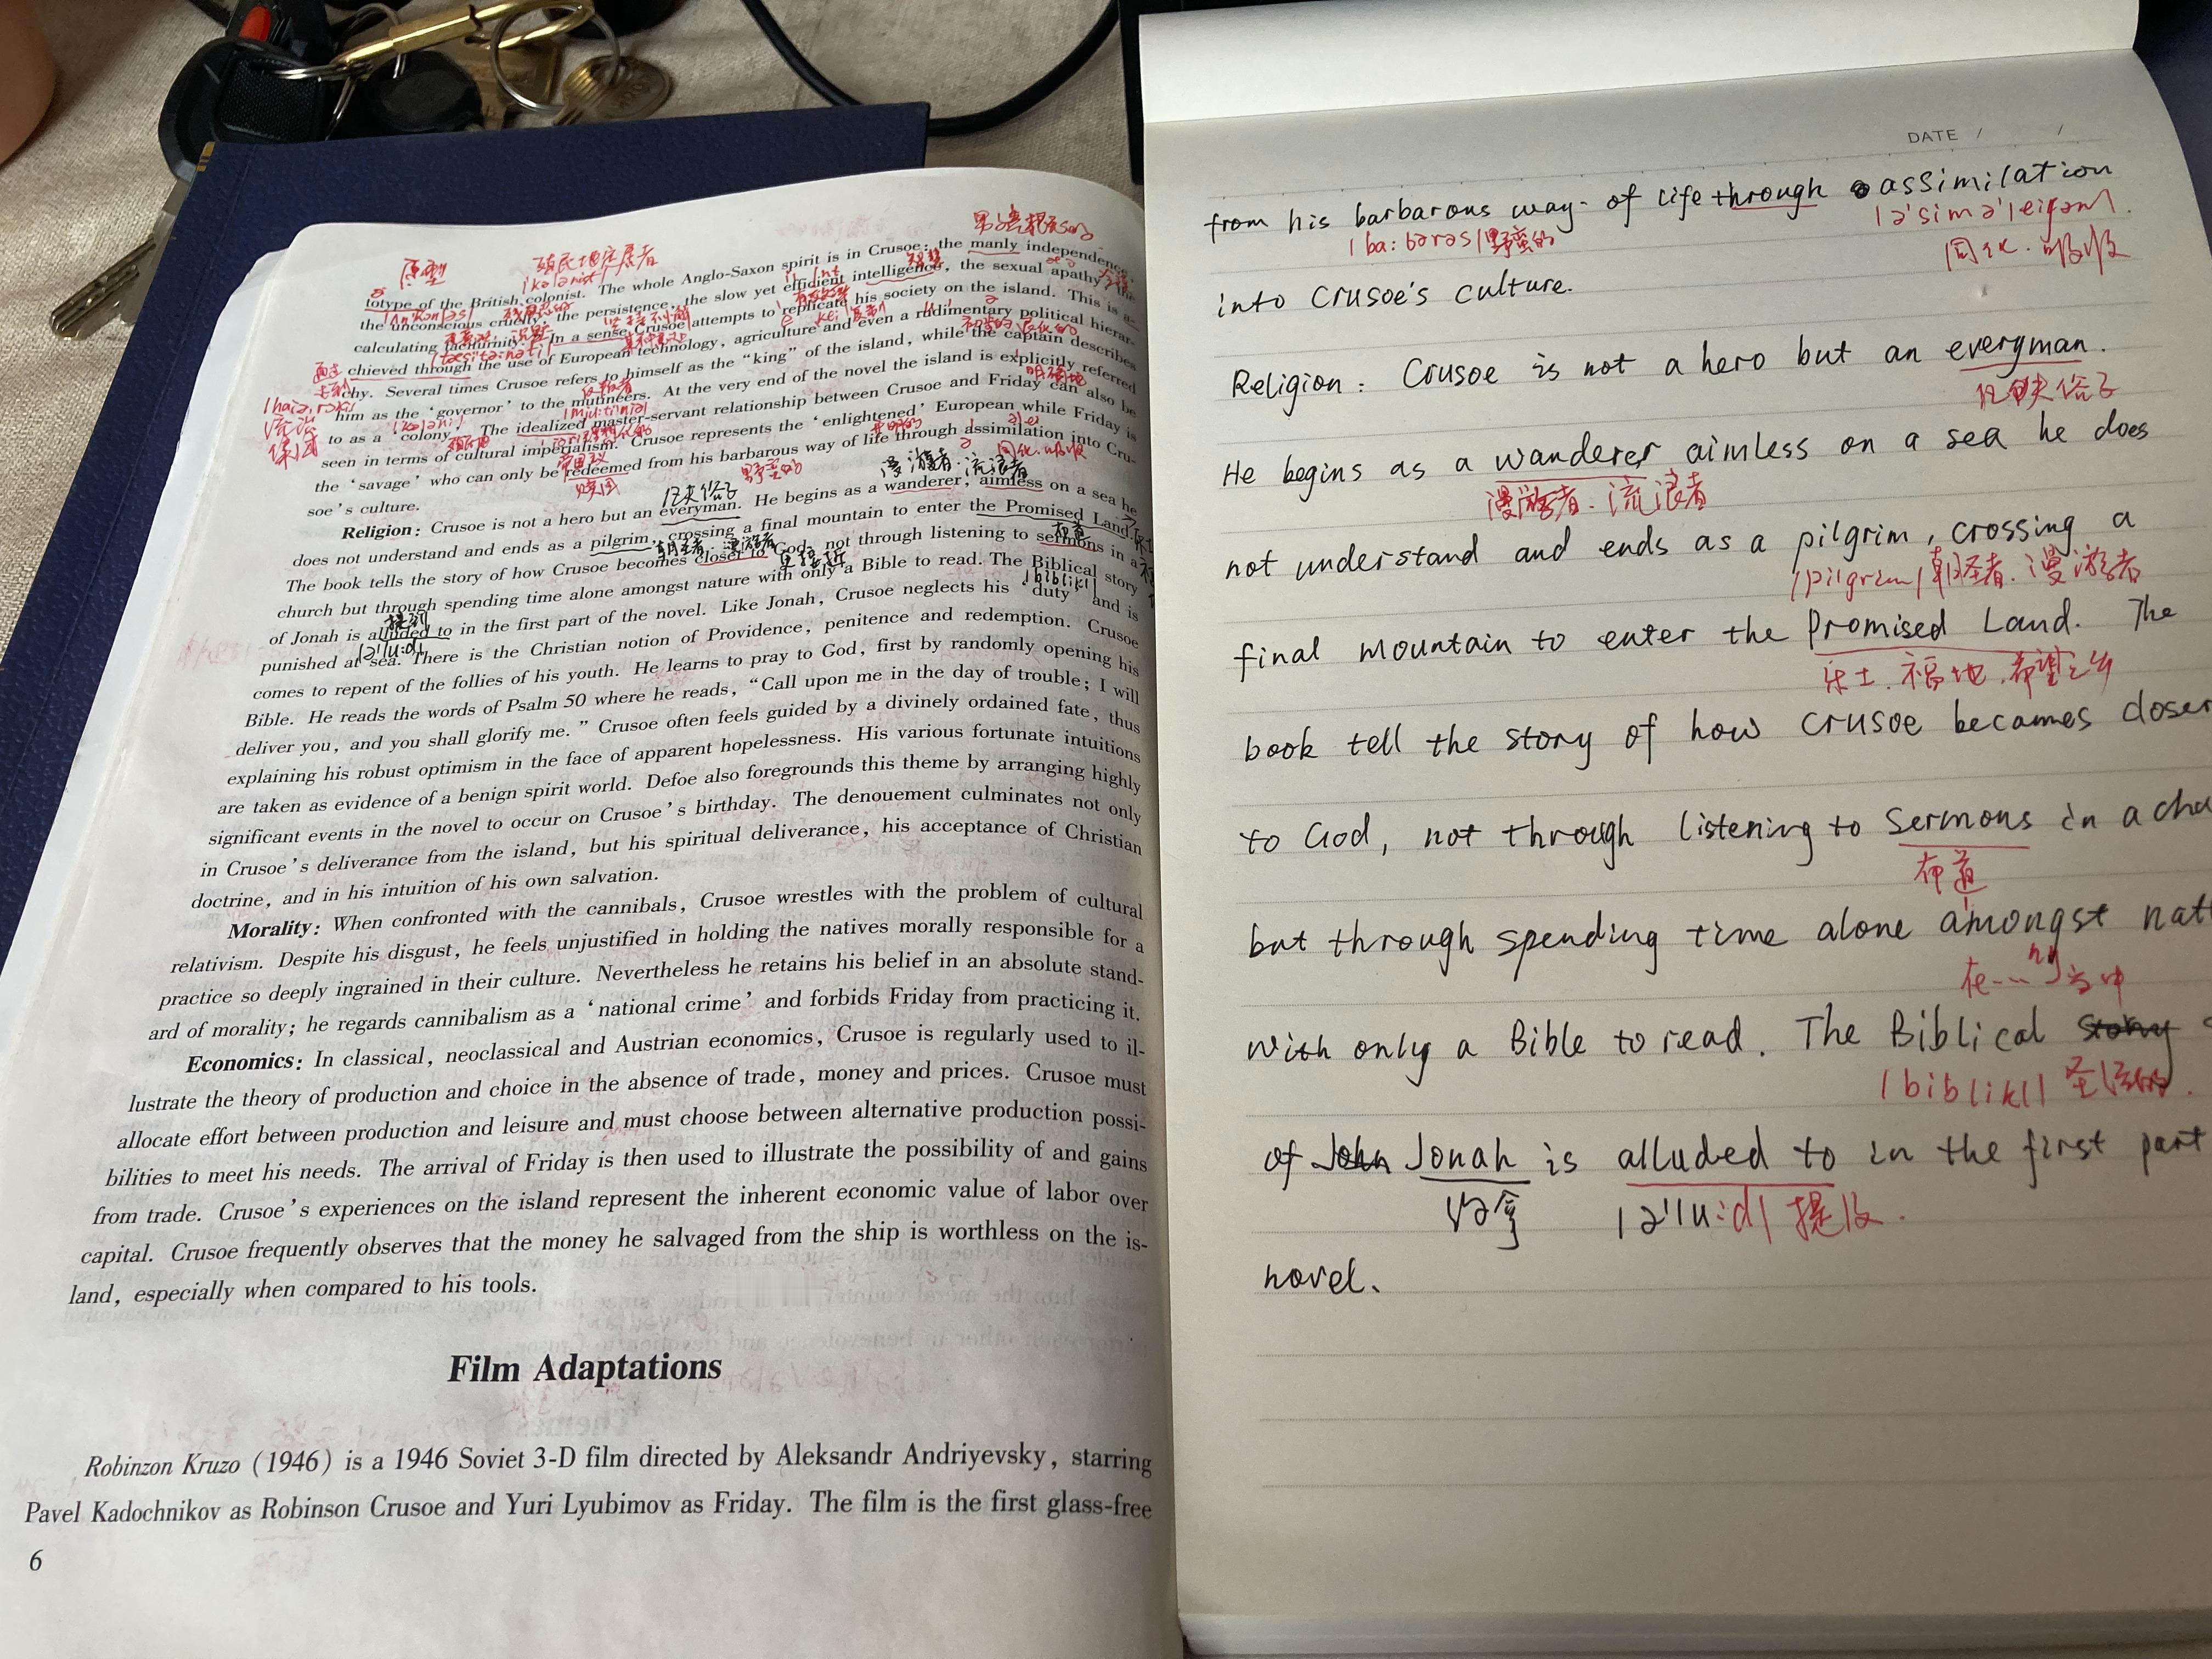 男子气概的
原型
殖民地定居者
totype of the British colonist. The whole Anglo-Saxon spirit is in Crusoe: the manly independence,
the unconscious cruelty, the persistence, the slow yet efficient intelligence, the sexual apathy, the
calculating taciturnity. In a sense Crusoe attempts to replicate his society on the island. This is a-
chieved through the use of European technology, agriculture and even a rudimentary political hierar-
chy. Several times Crusoe refers to himself as the "king" of the island, while the captain describes
him as the 'governor' to the mutineers. At the very end of the novel the island is explicitly referred
to as a 'colony.' The idealized master-servant relationship between Crusoe and Friday can also be
seen in terms of cultural imperialism. Crusoe represents the 'enlightened' European while Friday is
the 'savage' who can only be redeemed from his barbarous way of life through assimilation into Cru-
soe's culture.
赎回
野蛮的
漫游者.流浪者
同化.吸收
Religion: Crusoe is not a hero but an everyman. He begins as a wanderer, aimless on a sea he
does not understand and ends as a pilgrim, crossing a final mountain to enter the Promised Land.
The book tells the story of how Crusoe becomes closer to God, not through listening to sermons in a
church but through spending time alone amongst nature with only a Bible to read. The Biblical story
of Jonah is alluded to in the first part of the novel. Like Jonah, Crusoe neglects his 'duty' and is
punished at sea. There is the Christian notion of Providence, penitence and redemption. Crusoe
comes to repent of the follies of his youth. He learns to pray to God, first by randomly opening his
Bible. He reads the words of Psalm 50 where he reads, "Call upon me in the day of trouble; I will
deliver you, and you shall glorify me." Crusoe often feels guided by a divinely ordained fate, thus
explaining his robust optimism in the face of apparent hopelessness. His various fortunate intuitions
are taken as evidence of a benign spirit world. Defoe also foregrounds this theme by arranging highly
significant events in the novel to occur on Crusoe's birthday. The denouement culminates not only
in Crusoe's deliverance from the island, but his spiritual deliverance, his acceptance of Christian
doctrine, and in his intuition of his own salvation.
Morality: When confronted with the cannibals, Crusoe wrestles with the problem of cultural
relativism. Despite his disgust, he feels unjustified in holding the natives morally responsible for a
practice so deeply ingrained in their culture. Nevertheless he retains his belief in an absolute stand-
ard of morality; he regards cannibalism as a 'national crime' and forbids Friday from practicing it.
Economics: In classical, neoclassical and Austrian economics, Crusoe is regularly used to il-
lustrate the theory of production and choice in the absence of trade, money and prices. Crusoe must
allocate effort between production and leisure and must choose between alternative production possi-
bilities to meet his needs. The arrival of Friday is then used to illustrate the possibility of and gains
from trade. Crusoe's experiences on the island represent the inherent economic value of labor over
capital. Crusoe frequently observes that the money he salvaged from the ship is worthless on the is-
land, especially when compared to his tools.
Film Adaptations
Robinzon Kruzo (1946) is a 1946 Soviet 3-D film directed by Aleksandr Andriyevsky, starring
Pavel Kadochnikov as Robinson Crusoe and Yuri Lyubimov as Friday. The film is the first glass-free
6
DATE / /
from his barbarous way of life through assimilation
|ba:bərəs|野蛮的
|ə'simə'leiʃən|.
同化.吸收
into Crusoe's culture.
Religion: Crusoe is not a hero but an everyman.
凡夫俗子
He begins as a wanderer aimless on a sea he does
漫游者.流浪者
not understand and ends as a pilgrim, crossing a
|pilgrim|朝圣者.漫游者
final mountain to enter the Promised Land. The
乐土.福地.希望之乡
book tell the story of how Crusoe becomes closer
to God, not through listening to Sermons in a chu
布道
but through spending time alone amongst nat
在...当中
with only a Bible to read. The Biblical story
|biblikl| 圣经的.
of John Jonah is alluded to in the first part
约拿 |ə'lu:d| 提及.
novel.